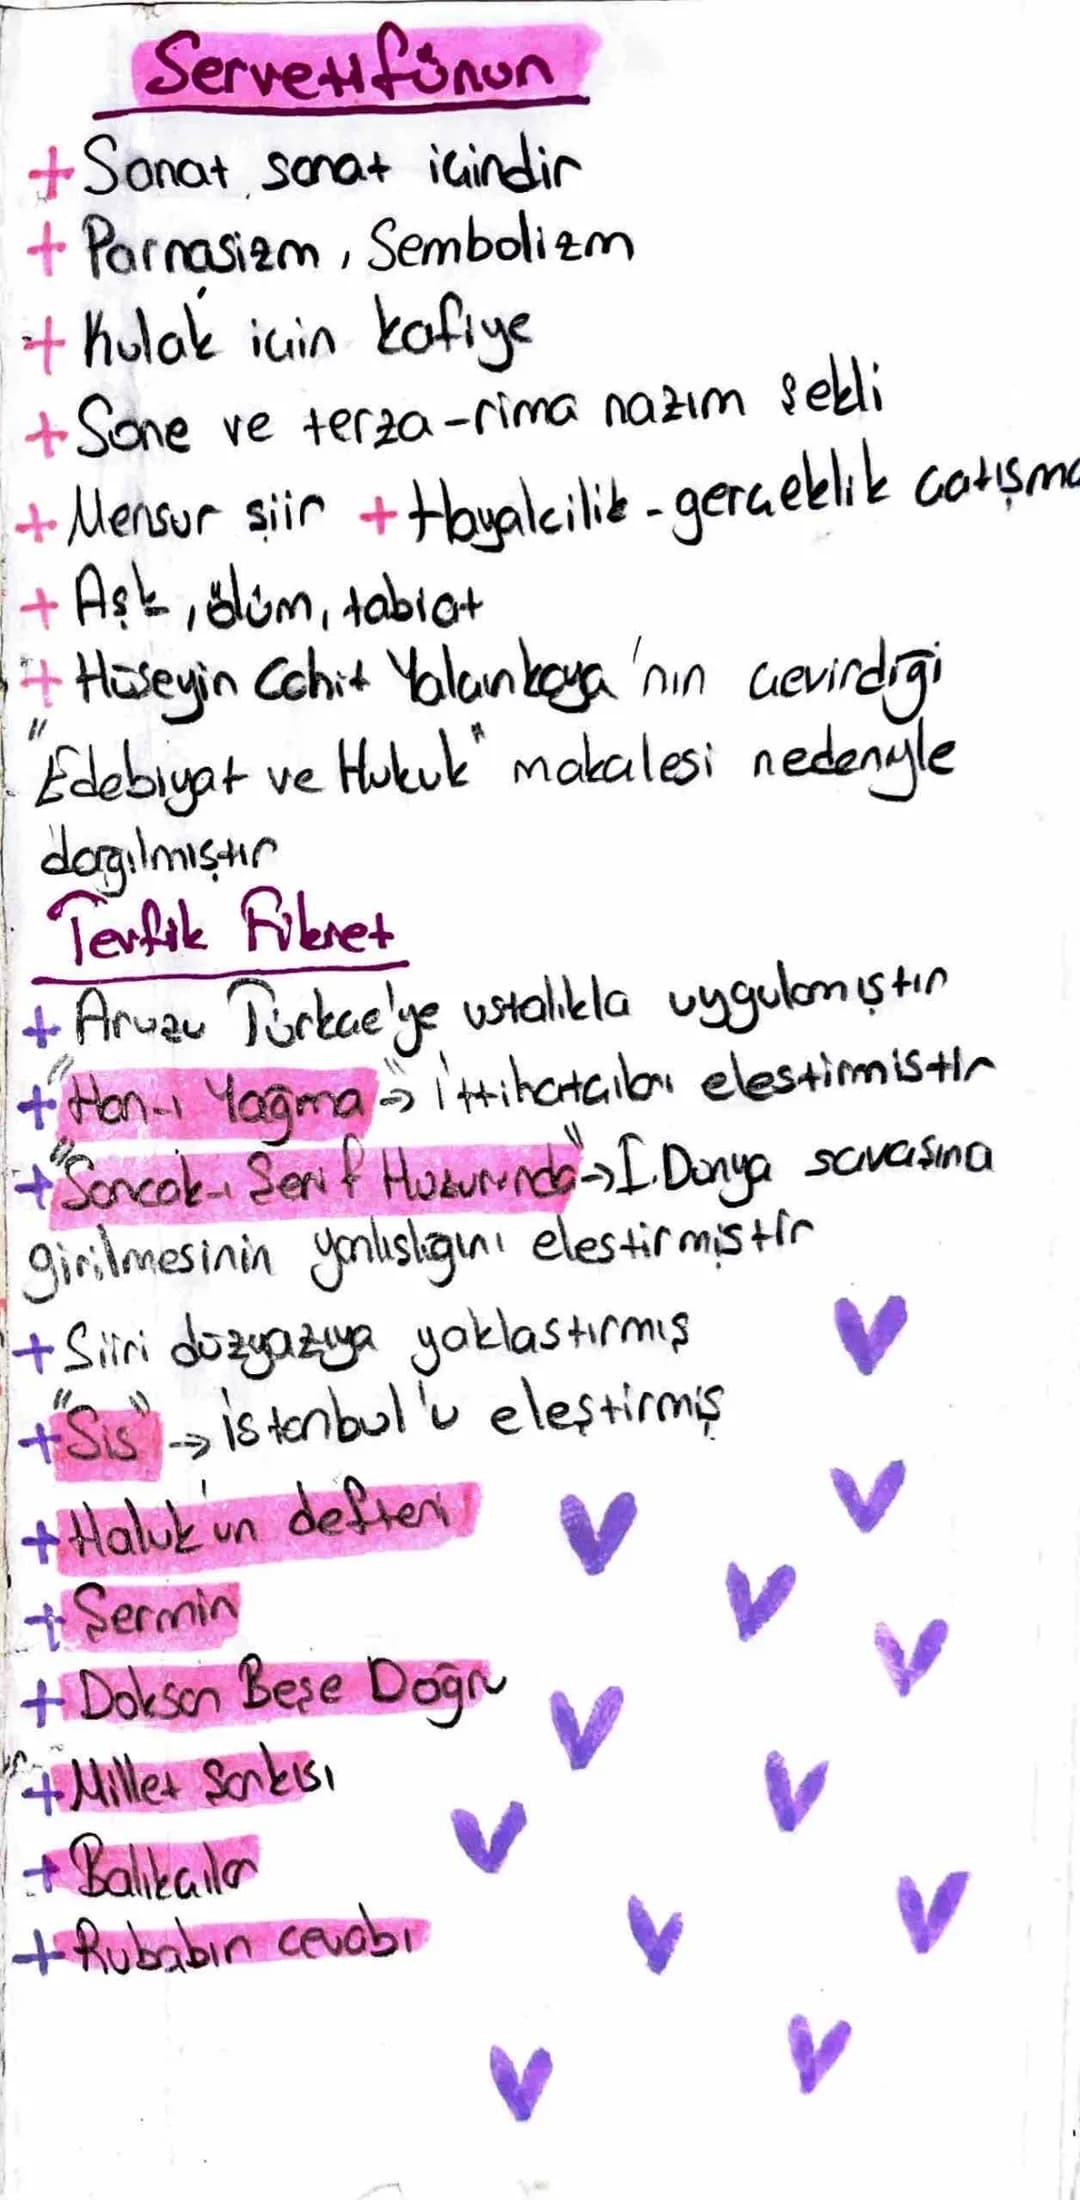 Servetifünun
+ Sanat sanat içindir
+ Parnasizm, Sembolizm
+ Kulak için kafiye
+ Sone ve terza-rima nazım şekli
+ Mensur şiir + Hayalcilik - gerçeklik çatışma
+ Aşk, ölüm, tabiat
+ Hüseyin Cahit Yalçınkaya'nın çevirdiği
"Edebiyat ve Hukuk" makalesi nedeniyle
dağılmıştır
Tevfik Fikret
+ Aruzu Türkçe'ye ustalıkla uygulamıştır
+ "Han-ı Yağma" → İttihatçıları elestirmistir
+ "Sancak-ı Şerif Huzurunda" → I. Dünya savaşına
girilmesinin yanlışlığını elestirmiştir
+ Şiiri düzyazıya yaklastırmış
+ "Sis" → İstanbul'u eleştirmiş
+ Haluk'un defteri
+ Şermin
+ Doksan Beşe Doğru
+ Millet Şarkısı
+ Balıkçılar
+ Rubabın cevabı